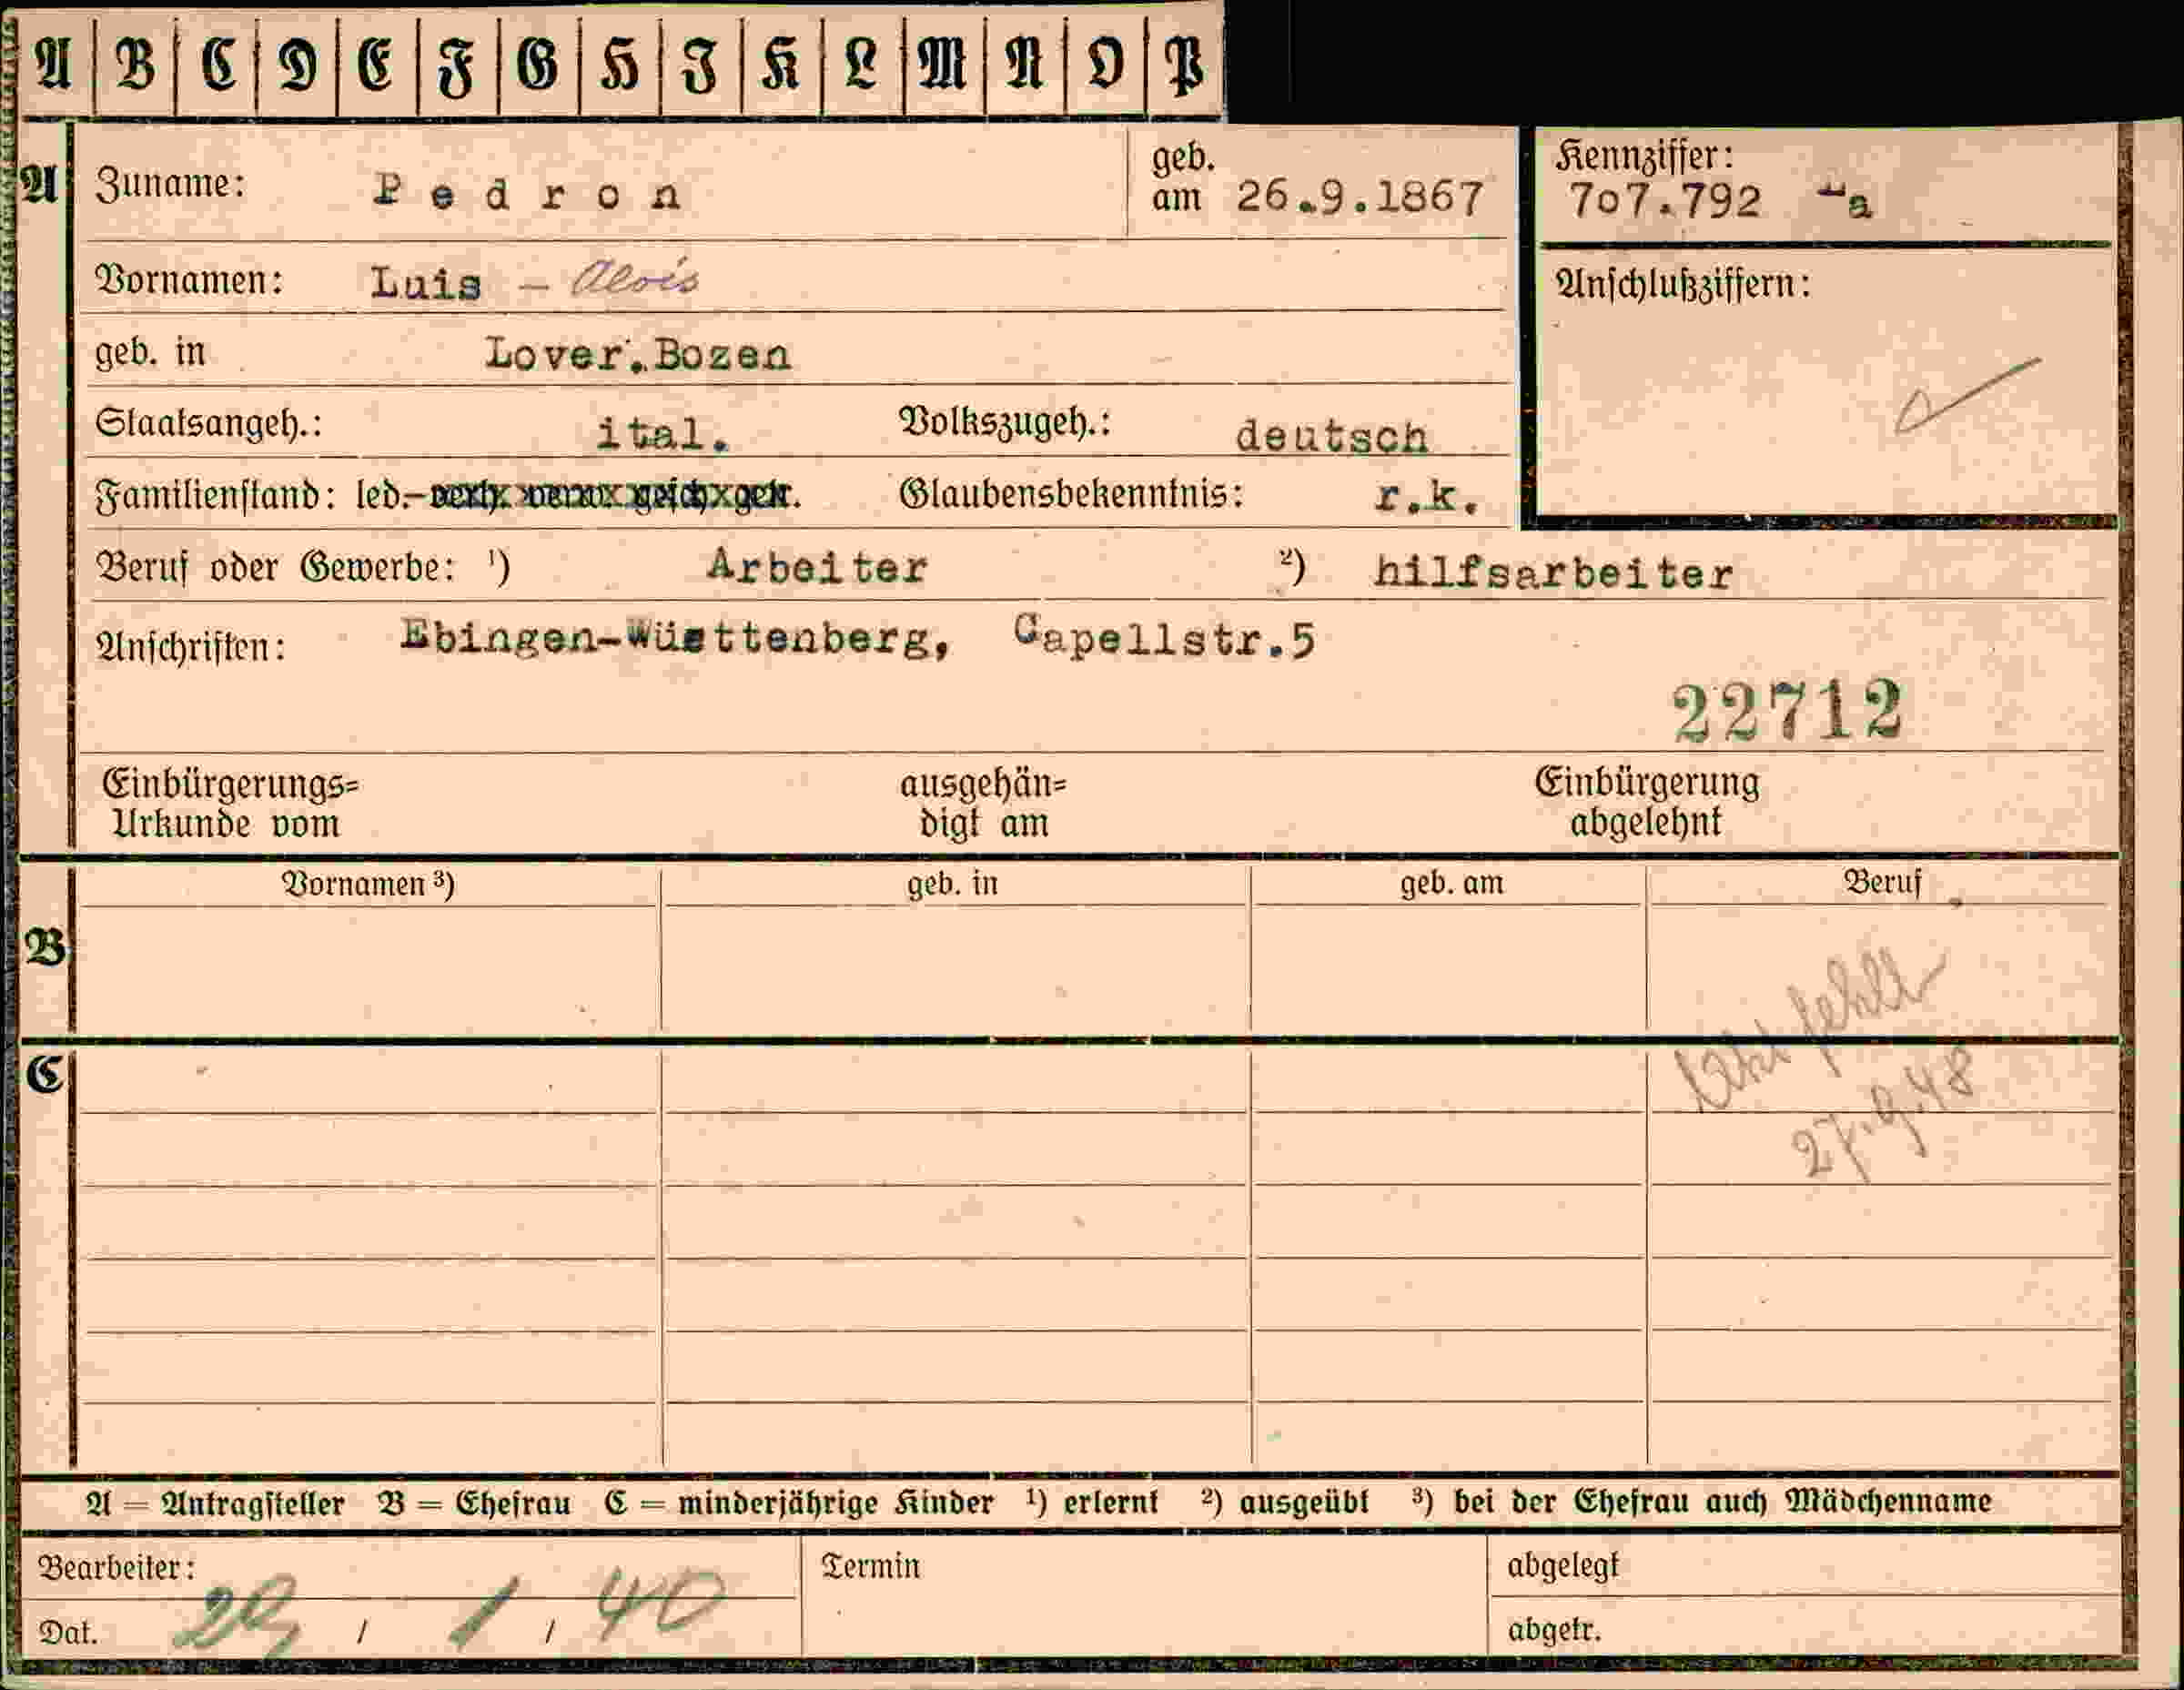 A B C D E F G H I K L M N O P
A Zuname: Pedron geb. am 26.9.1867 Kennziffer: 707.792 -a
Vornamen: Luis - Alois Anschlußziffern:
geb. in Lover.Bozen
Staatsangeh.: ital. Volkszugeh.: deutsch
Familienstand: led.- Glaubensbekenntnis: r.k.
Beruf oder Gewerbe: ¹) Arbeiter ²) hilfsarbeiter
Anschriften: Ebingen-Wüettenberg, Capellstr.5
22712
Einbürgerungs= ausgehän= Einbürgerung
Urkunde vom digt am abgelehnt
Vornamen ³) geb. in geb. am Beruf
B
Akt fehlt
C
27.9.48
A = Antragsteller B = Ehefrau C = minderjährige Kinder ¹) erlernt ²) ausgeübt ³) bei der Ehefrau auch Mädchenname
Bearbeiter: Termin abgelegt
Dat. 29 / 1 / 40 abgetr.